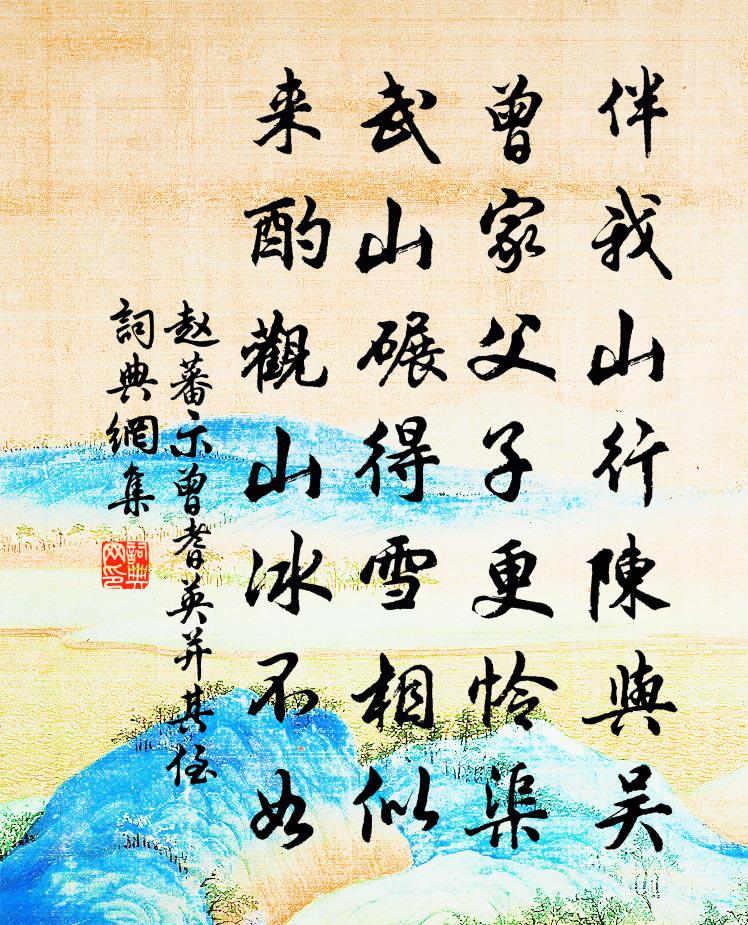 伴我山行陳與吳
曾家父子更怜渠
武山碾得雪相似
来酌觀山冰不如
赵蕃示曾耆英并其侄
詞典網集
詞典
网印